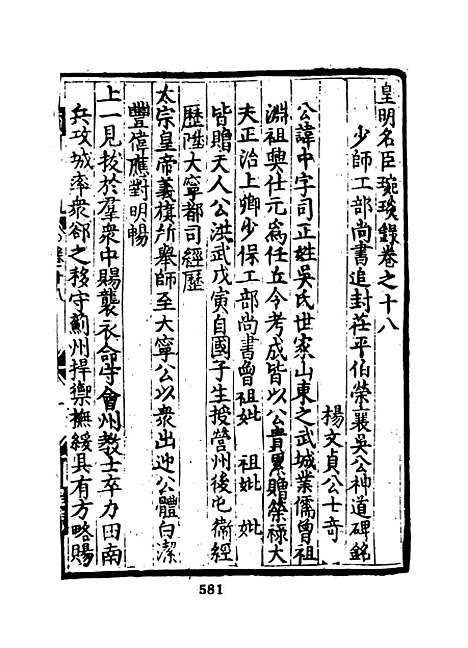 皇明名臣琬琰錄卷之十八
少師工部尚書追封茌平伯榮襄吳公神道碑銘
楊文貞公士奇
公諱中字司正姓吳氏世家山東之武城業儒曾祖
淵祖興仕元為任丘令考成皆以公貴累贈榮祿大
夫正治上卿少保工部尚書曾祖妣 祖妣 妣
皆贈夫人公洪武戊寅自國子生授營州後屯衛經
歷陞大寧都司經歷
太宗皇帝義旗所舉師至大寧公以衆出迎公體白潔
豐偉應對明暢
上一見拔於羣衆中賜襲衣命守會州教士卒力田南
兵攻城率衆郤之移守薊州捍禦撫綏具有方略賜
581